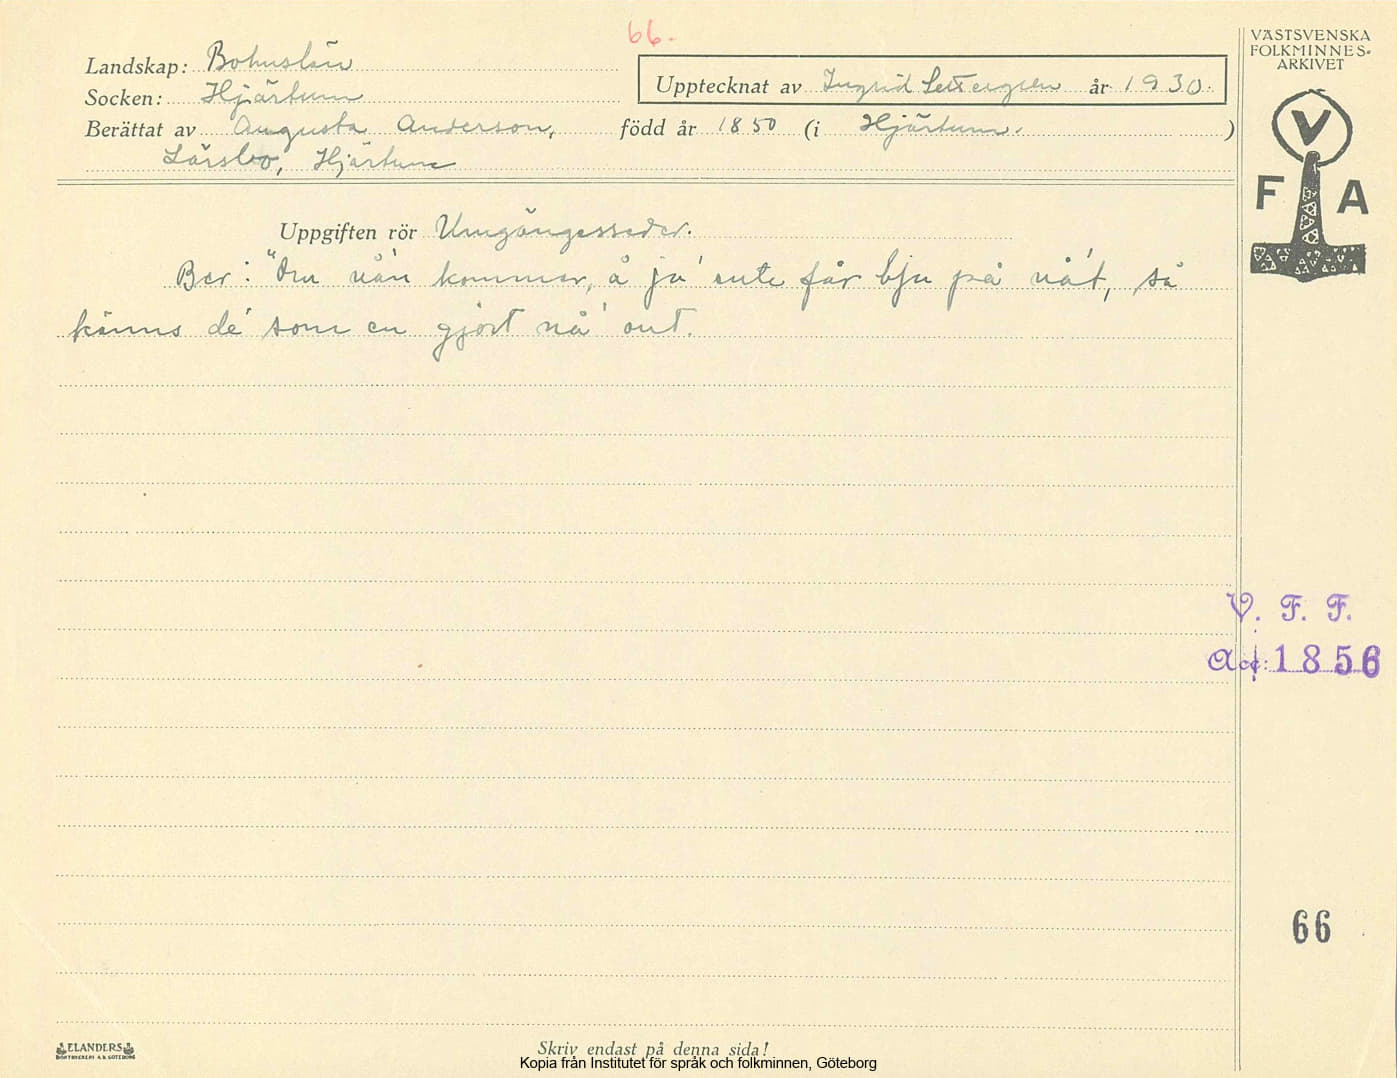 66.
VÄSTSVENSKA
FOLKMINNES-
ARKIVET
Landskap: Bohuslän
Upptecknat av Ingrid år 1930.
Socken: Hjärtum
Berättat av Augusta Anderson, född år 1850 (i Hjärtum. )
Lärsbo, Hjärtum
V
F A
Uppgiften rör Umgängesseder.
Ber: "Om nån kommer, å ja' ente får bju på nå't, så
känns de' som en gjort nå' ont.
V. F. F.
Acc: 1856
66
ELANDERS
BOKTRYCKERI A.B. GÖTEBORG
Skriv endast på denna sida!
Kopia från Institutet för språk och folkminnen, Göteborg